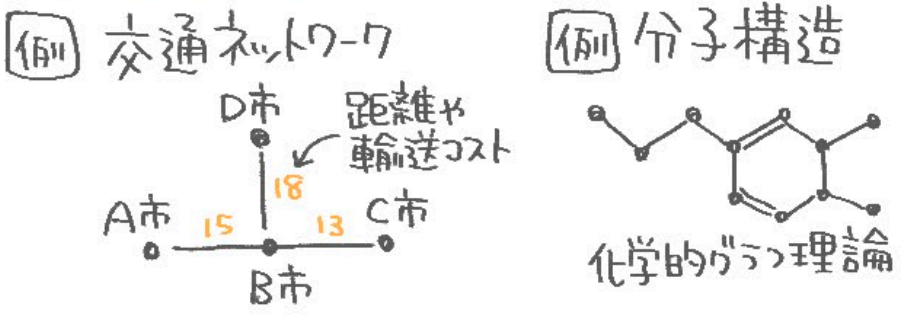 例 交通ネットワーク
D市
距離や
輸送コスト
18
A市
15
13
C市
B市
例 分子構造
化学的グラフ理論